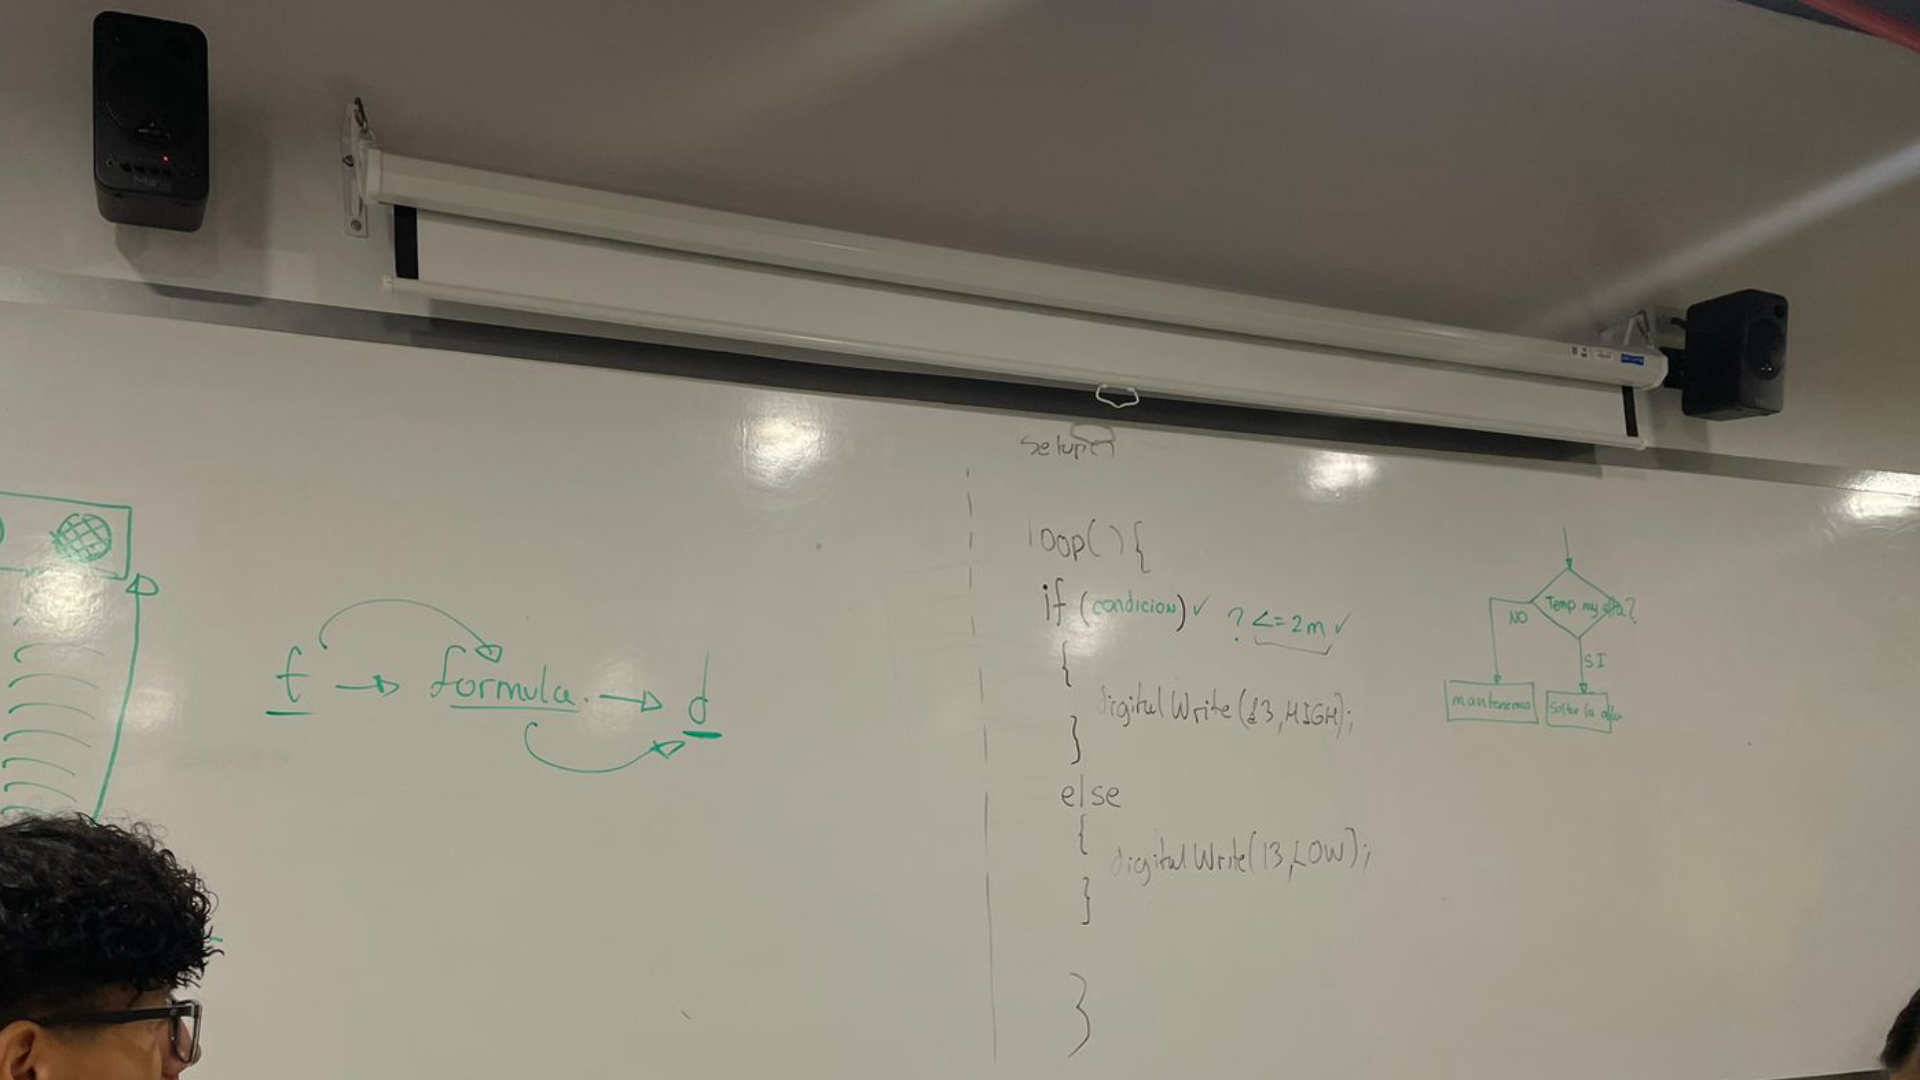 t → formula. → d
setup()
loop() {
if (condicion) ✓ ? <= 2m ✓
{
digitalWrite(13, HIGH);
}
else
{
digitalWrite(13, LOW);
}
}
Temp. muy alta?
NO
SI
mantenemos
Soltar la